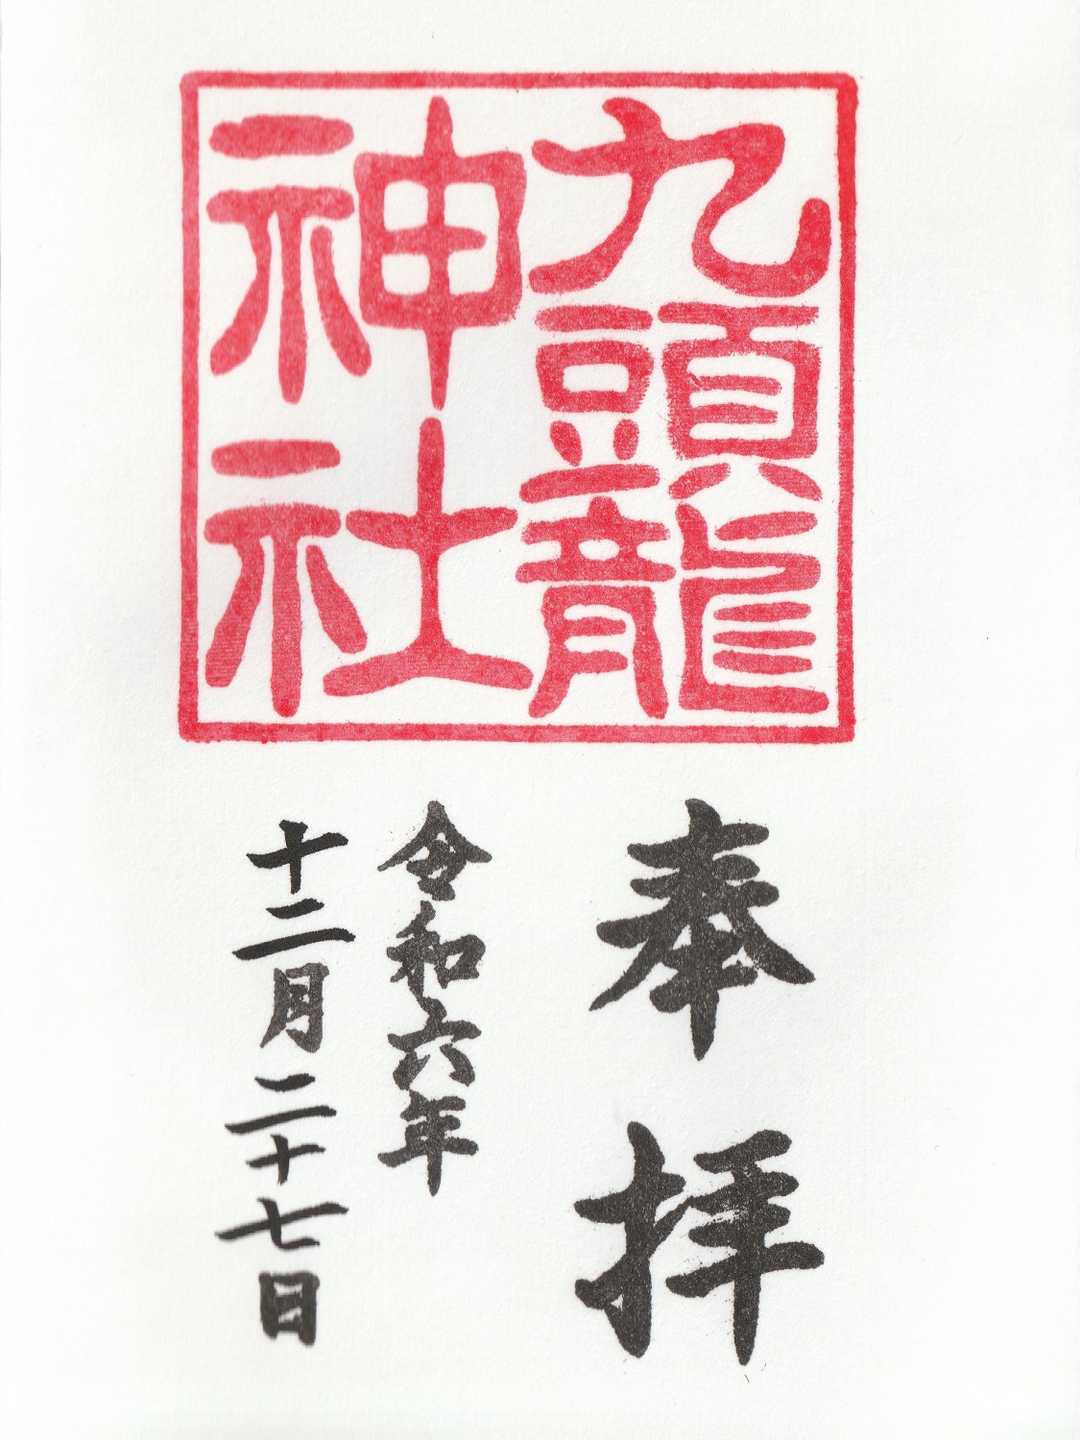 九頭龍
神社
奉拝
令和六年
十二月二十七日